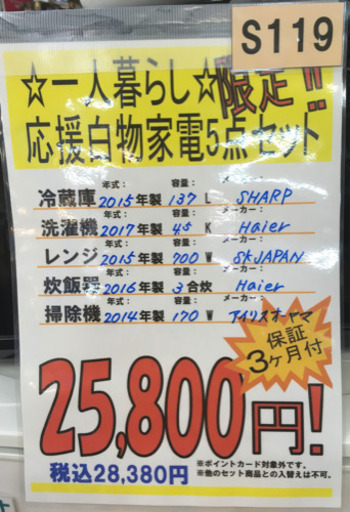 S119
☆一人暮らし☆限定!!
応援白物家電5点セット
年式: 容量: メーカー:
冷蔵庫 2015年製 137 L SHARP
年式: 容量: メーカー:
洗濯機 2017年製 45 K Haier
年式: 容量: メーカー:
レンジ 2015年製 700 W SKJAPAN
年式: 容量: メーカー:
炊飯器 2016年製 3合炊 Haier
年式: 容量: メーカー:
掃除機 2014年製 170 W アイリスオーヤマ
保証
3ヶ月付
25,800円!
税込28,380円
※ポイントカード対象外です。
※他のセット商品との入替えは不可。